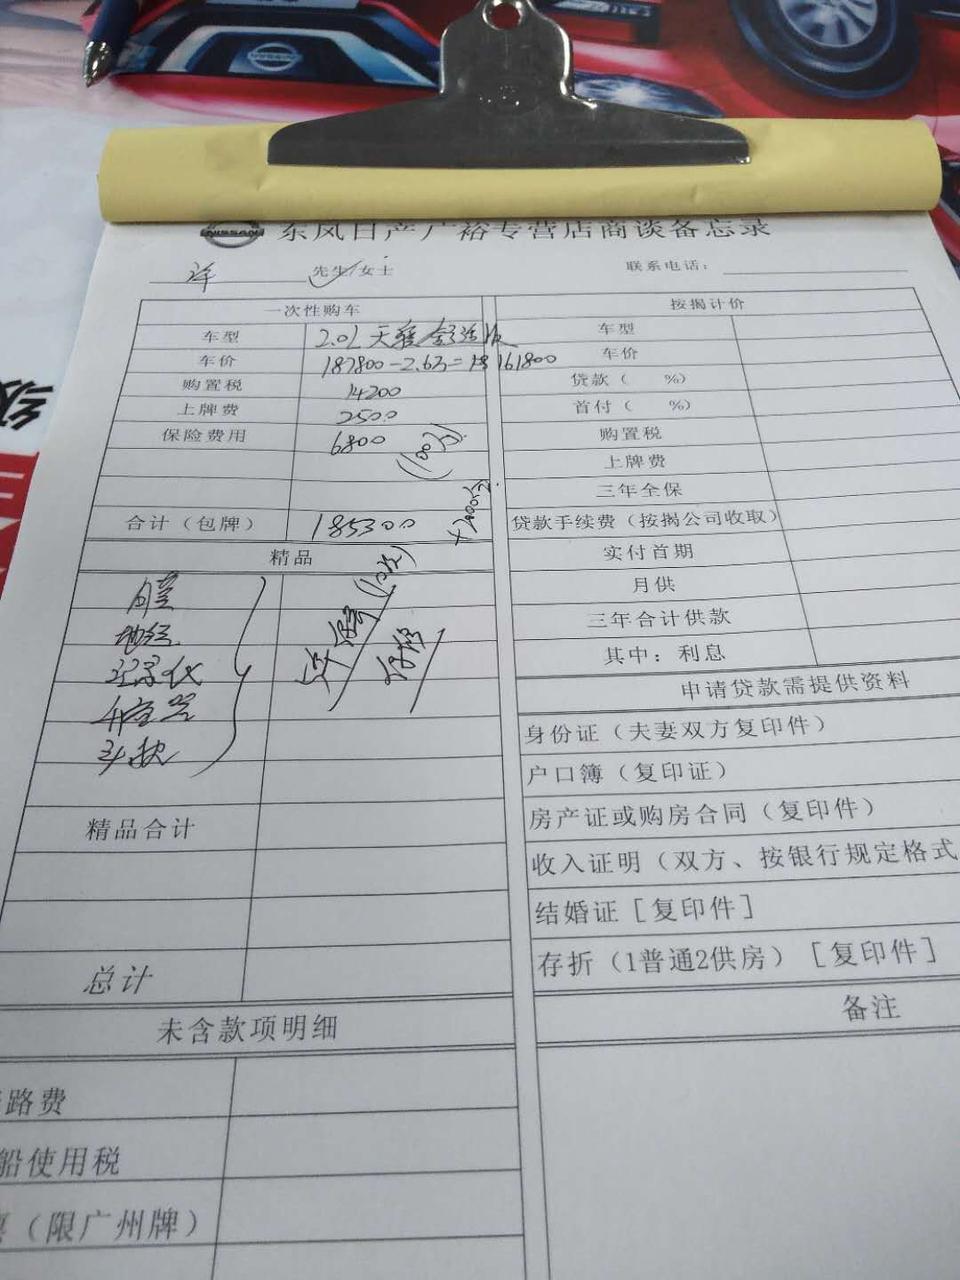 NISSAN
东风日产广裕专营店商谈备忘录
许 先生/女士
联系电话：
一次性购车
车型 2.0L 天籁舒适版
车价 187800-2.6万= 161800
购置税 14200
上牌费 2500
保险费用 6800 (100万)
合计（包牌） 185300
精品
地毯
记录仪
精品合计
总计
未含款项明细
路费
船使用税
（限广州牌）
按揭计价
车型
车价
贷款（ %）
首付（ %）
购置税
上牌费
三年全保
贷款手续费（按揭公司收取）
实付首期
月供
三年合计供款
其中：利息
申请贷款需提供资料
身份证（夫妻双方复印件）
户口簿（复印证）
房产证或购房合同（复印件）
收入证明（双方、按银行规定格式
结婚证［复印件］
存折（1普通2供房）［复印件］
备注